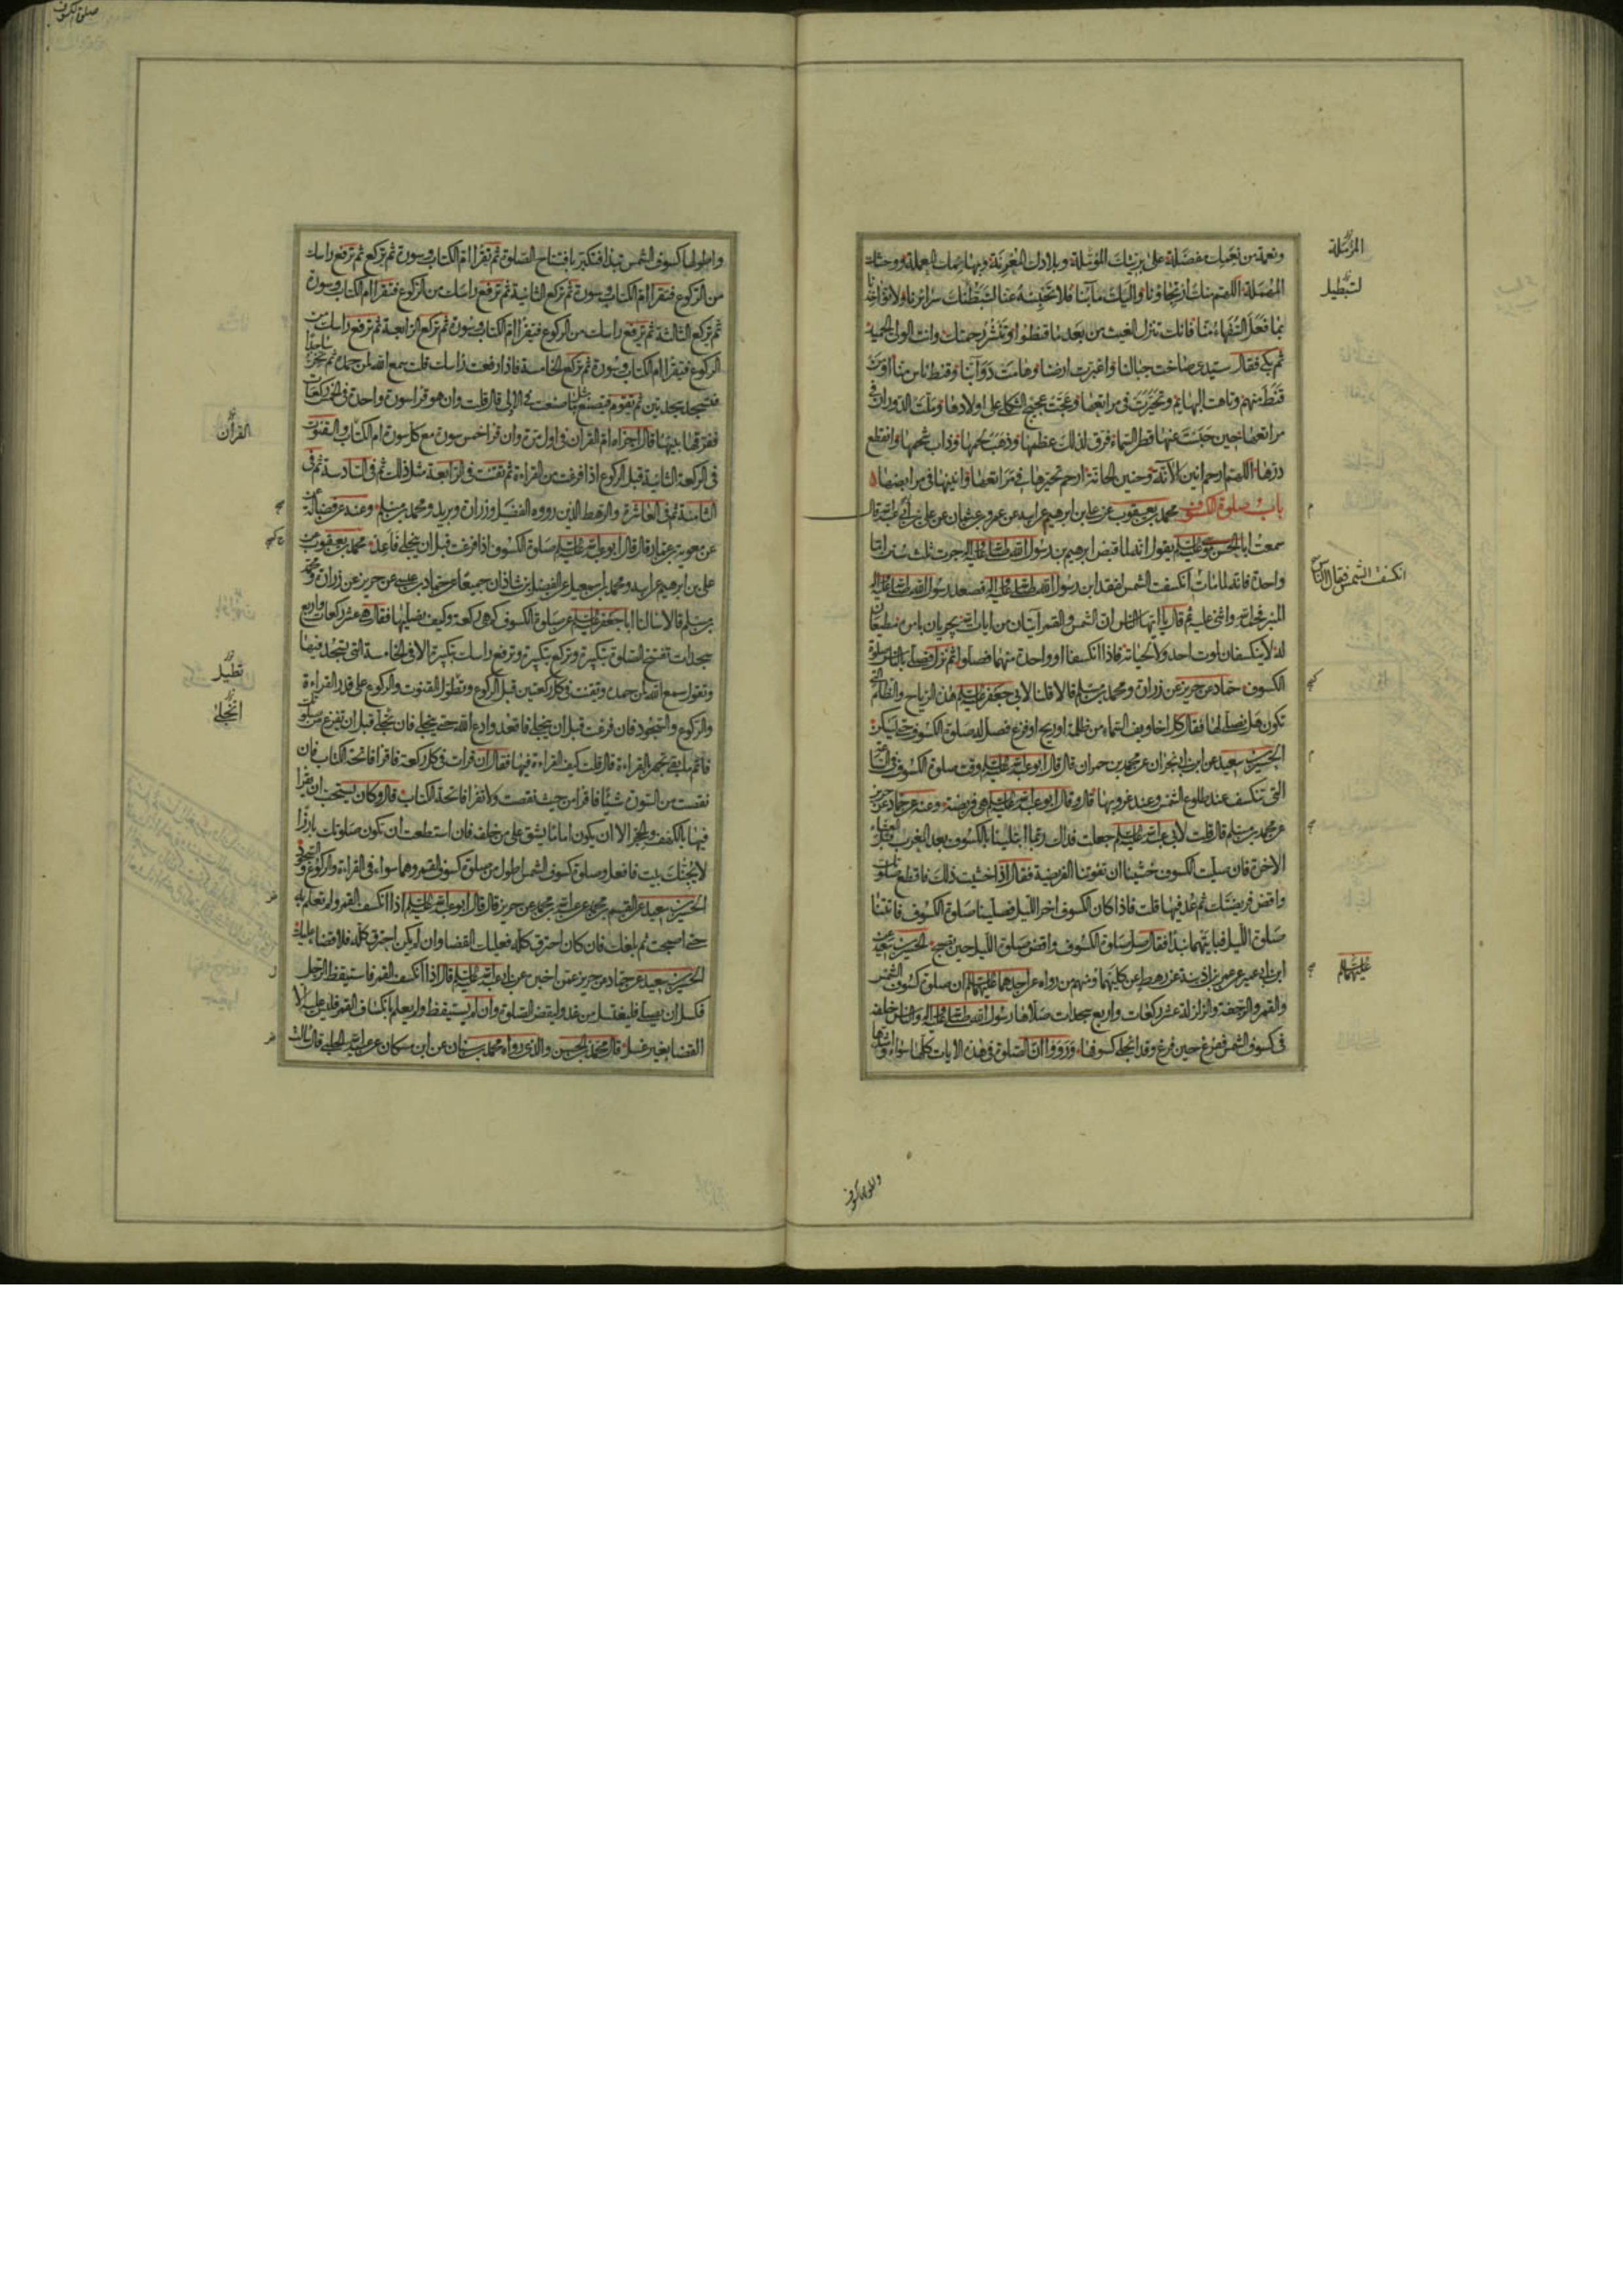 ونعمة من نعمك مفضلة على بريتك المؤملة وبلادك المغربة وبهائمك المعملة ووحشك
المهملة اللهم منك ارتجاؤنا واليك مآبنا فلا تحبسه عنا لتبطنك سرائرنا ولا تؤاخذنا
بما فعل السفهاء منا فانك تنزل الغيث من بعد ما قنطوا وتنشر رحمتك وانت الولي الحميد
ثم بكى فقال سيدي صاخت جبالنا واغبرت ارضنا وهامت دوابنا وقنط ناس منا او من
قنط منهم وتاهت البهائم وتحيرت في مراتعها وعجت عجيج الثكلى على اولادها وملت الدوران في
مراتعها حين حبست عنها قطر السماء فرق لذلك عظمها وذهب لحمها وذاب شحمها وانقطع
درها اللهم ارحم انين الآنة وحنين الحانة ارحم تحيرها في مراتعها وانينها في مرابضها
باب صلوة الكسوف محمد بن يعقوب عن علي بن ابراهيم عن ابيه عن عمرو بن عثمان عن علي بن ابي عبد الله قال
سمعت ابا الحسن موسى عليه السلام يقول انه لما قبض ابراهيم بن رسول الله صلى الله عليه واله جرت ثلث سنن اما
واحدة فانه لما مات انكسفت الشمس لفقد ابن رسول الله صلى الله عليه واله فصعد رسول الله صلى الله عليه واله
المنبر فحمد الله واثنى عليه ثم قال يا ايها الناس ان الشمس والقمر آيتان من ايات الله يجريان بامره مطيعان
له لا ينكسفان لموت احد ولا لحياته فاذا انكسفتا او واحدة منهما فصلوا ثم نزل فصلى بالناس صلوة
الكسوف حماد عن حريز عن زرارة ومحمد بن مسلم قالا قلنا لابي جعفر عليه السلام هذه الرياح والظلم التي
تكون هل يصلى لها فقال كل اخاويف السماء من ظلمة او ريح او فزع فصل له صلوة الكسوف حتى يسكن
الحسين بن سعيد عن ابن ابي نجران عن محمد بن حمران قال قال ابو عبد الله عليه السلام وقت صلوة الكسوف في الساعة
التي تنكسف عند طلوع الشمس وعند غروبها قال وقال ابو عبد الله عليه السلام هي فريضة وعنه عن حماد عن حريز
عن محمد بن مسلم قال قلت لابي عبد الله عليه السلام جعلت فداك ربما ابتلينا بالكسوف بعد المغرب قبل العشاء
الاخرة فان صليت الكسوف خشينا ان تفوتنا الفريضة فقال اذا خشيت ذلك فاقطع صلوتك
واقض فريضتك ثم عد فيها قلت فاذا كان الكسوف اخر الليل فصلينا صلوة الكسوف فاتتنا
صلوة الليل فبايتهما نبدأ فقال صل صلوة الكسوف واقض صلوة الليل حين تصبح الحسين بن سعيد عن
ابن ابي عمير عن عمر بن اذينة عن رهط عن كليهما ومنهم من رواه عن احدهما عليهما السلام ان صلوة كسوف الشمس
والقمر والرجفة والزلزلة عشر ركعات واربع سجدات صلاها رسول الله صلى الله عليه واله والناس خلفه
في كسوف الشمس ففرغ حين فرغ وقد انجلى كسوفها ورووا ان الصلوة في هذه الايات كلها سواء واشدها
المرملة
لتبطيل
انكسفت الشمس فقال الناس
عليهما السلام
صلوة الكسوف
واطولها كسوف الشمس تبدأ فتكبر بافتتاح الصلوة ثم تقرأ ام الكتاب وسورة ثم تركع ثم ترفع راسك
من الركوع فتقرأ ام الكتاب وسورة ثم تركع الثانية ثم ترفع راسك من الركوع فتقرأ ام الكتاب وسورة
ثم تركع الثالثة ثم ترفع راسك من الركوع فتقرأ ام الكتاب وسورة ثم تركع الرابعة ثم ترفع راسك من
الركوع فتقرأ ام الكتاب وسورة ثم تركع الخامسة فاذا رفعت راسك قلت سمع الله لمن حمده ثم تخر ساجدا
فتسجد سجدتين ثم تقوم فتصنع مثل ما صنعت في الاولى قال قلت وان هو قرأ سورة واحدة في الخمس ركعات
ففرقها بينها قال اجزاه ام القرآن في اول مرة وان قرأ خمس سور مع كل سورة ام الكتاب والقنوت
في الركعة الثانية قبل الركوع اذا فرغت من القراءة ثم تقنت في الرابعة مثل ذلك ثم في السادسة ثم في
الثامنة ثم في العاشرة والرهط الذين رووه الفضيل وزرارة وبريد ومحمد بن مسلم وعنه عن فضالة
عن معوية بن عمار قال قال ابو عبد الله عليه السلام صلوة الكسوف اذا فرغت قبل ان ينجلي فاعد محمد بن يعقوب عن
علي بن ابراهيم عن ابيه ومحمد بن اسمعيل عن الفضل بن شاذان جميعا عن حماد بن عيسى عن حريز عن زرارة ومحمد
بن مسلم قالا سالنا ابا جعفر عليه السلام عن صلوة الكسوف كم هي ركعة وكيف نصليها فقال هي عشر ركعات واربع
سجدات تفتتح الصلوة بتكبيرة وتركع بتكبيرة وترفع راسك بتكبيرة الا في الخامسة التي تسجد فيها
وتقول سمع الله لمن حمده وتقنت في كل ركعتين قبل الركوع وتطول القنوت والركوع على قدر القراءة
والركوع والسجود فان فرغت قبل ان ينجلي فاقعد وادع الله حتى ينجلي فان تجلى قبل ان تفرغ من صلوتك
فاتم ما بقي تجهر بالقراءة قال قلت كيف القراءة فيها فقال ان قرأت في كل ركعة فاقرأ فاتحة الكتاب فان
نقصت من السورة شيئا فاقرأ من حيث نقصت ولا تقرأ فاتحة الكتاب قال وكان يستحب ان يقرأ
فيها بالكهف والحجر الا ان يكون اماما يشق على من خلفه فان استطعت ان تكون صلوتك بارزا
لا يجنك بيت فافعل وصلوة كسوف الشمس اطول من صلوة كسوف القمر وهما سواء في القراءة والركوع والسجود
الحسين بن سعيد عن القسم بن محمد عن عبد الله بن محمد عن حريز قال قال ابو عبد الله عليه السلام اذا انكسف القمر ولم تعلم به
حتى اصبحت ثم بلغك فان كان احترق كله فعليك القضا وان لم يكن احترق كله فلا قضا عليك
الحسين بن سعيد عن حماد عن حريز عمن اخبره عن ابي عبد الله عليه السلام قال اذا انكسف القمر فاستيقظ الرجل
فكسل ان يصلي فليغتسل من غد وليقض الصلوة وان لم يستيقظ ولم يعلم بانكساف القمر فليس عليه الا
القضا بغير غسل قال محمد بن الحسن والذي رواه محمد بن سنان عن ابن مسكان عن عبيد الله الحلبي قال سالت
القرآن
تطيل
انجلى